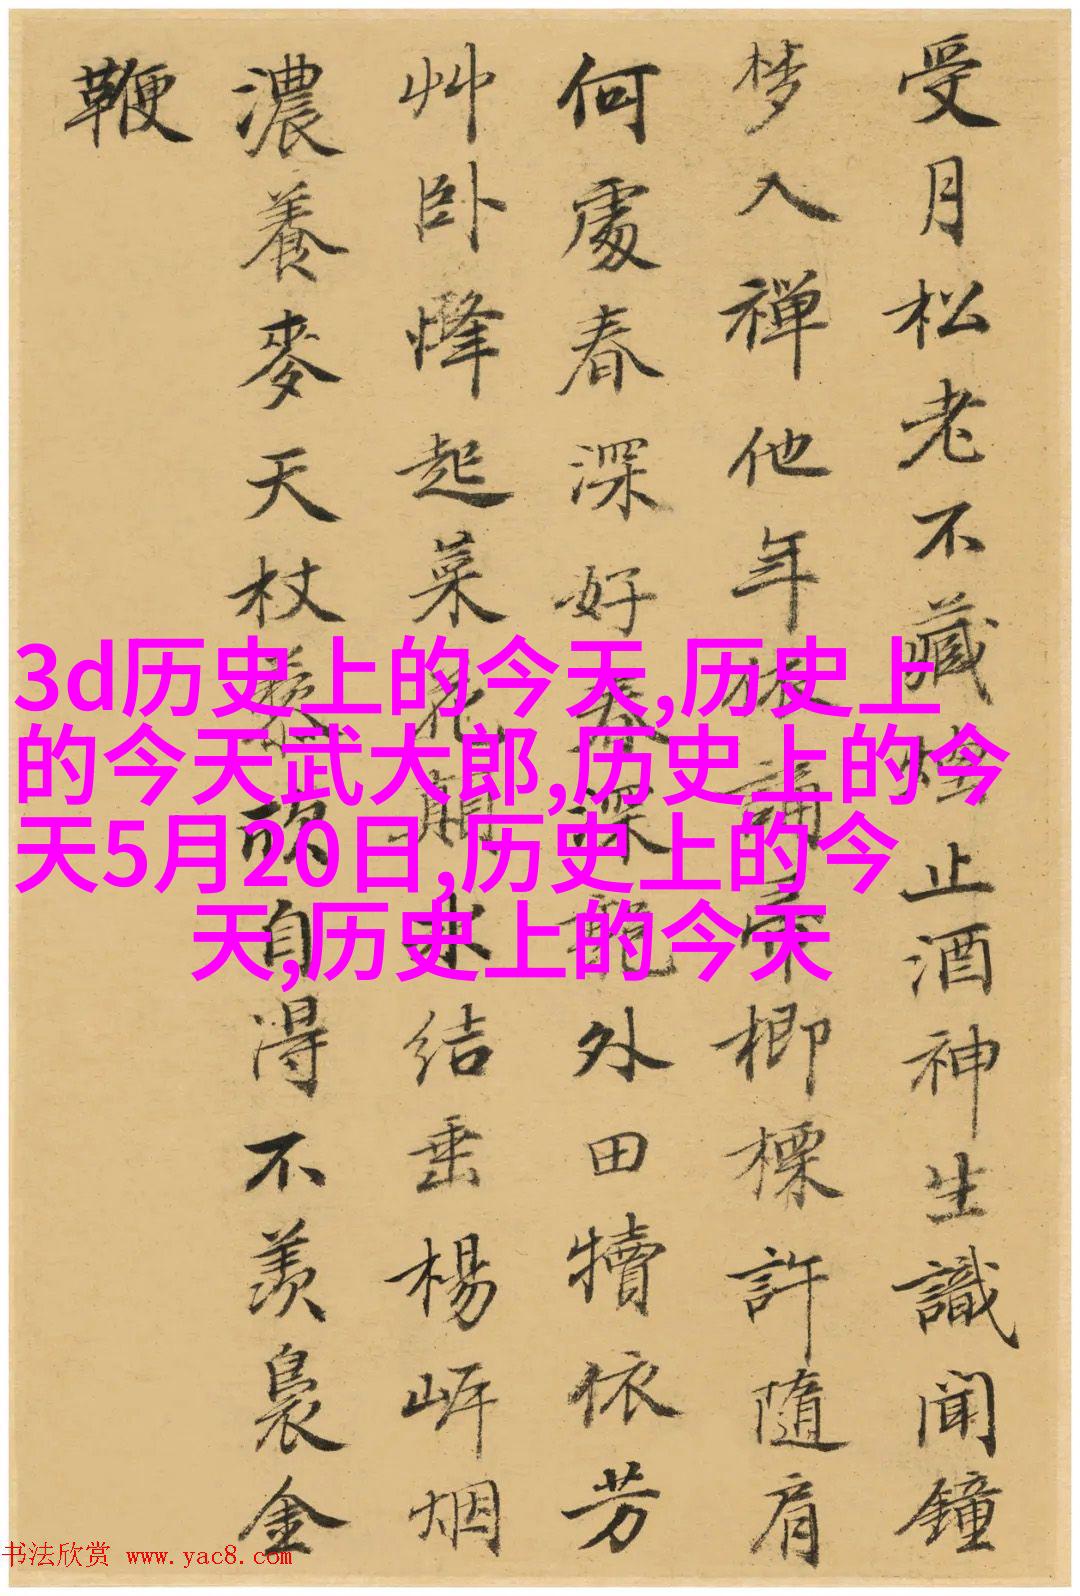 受月松老不藏煙止酒神生識聞鐘
梦入禅他年誦帚楖許隨肩
何處春深好春深外田犢依芳
艸卧起菜花水结垂楊岍烟
濃養麥天杖自得不羨裊金
鞭
3d历史上的今天,历史上
的今天武大郎,历史上的今
天5月20日,历史上的今
天,历史上的今天
书法欣赏 www.yac8.com